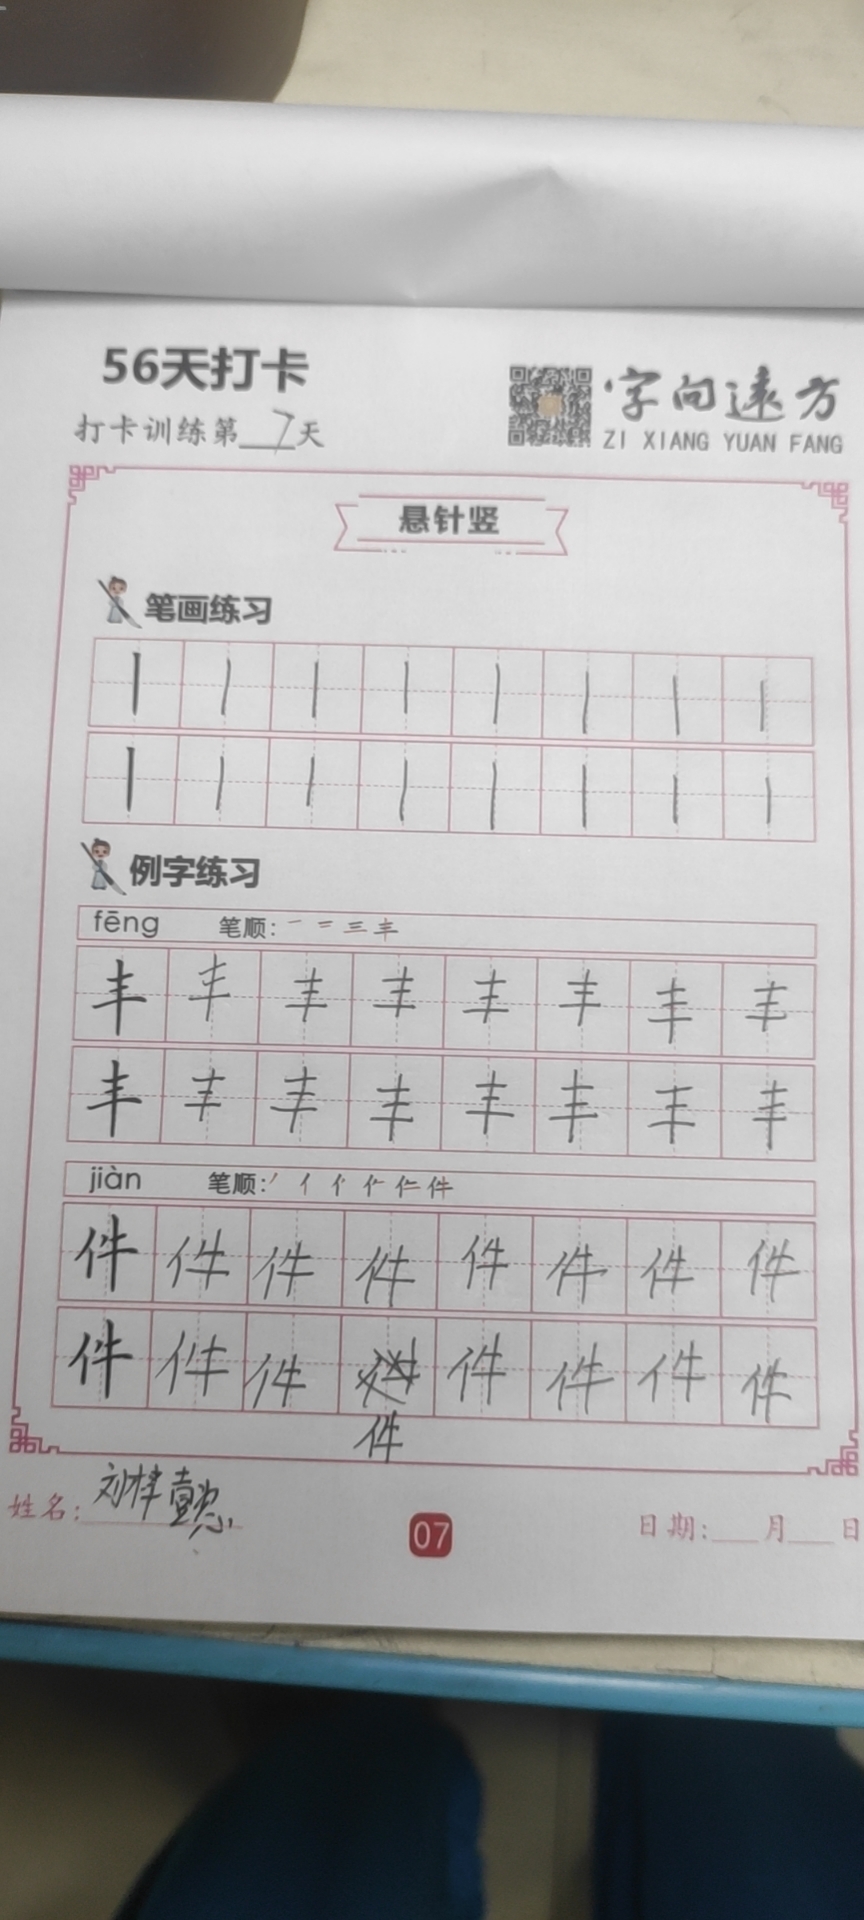 56天打卡
打卡训练第7天
字向远方
ZI XIANG YUAN FANG
悬针竖
笔画练习
丨 丨 丨 丨 丨 丨 丨 丨
丨 丨 丨 丨 丨 丨 丨 丨
例字练习
fēng 笔顺: 一 二 三 丰
丰 丰 丰 丰 丰 丰 丰 丰
丰 丰 丰 丰 丰 丰 丰 丰
jiàn 笔顺: 丿 亻 件
件 件 件 件 件 件 件 件
件 件 件 件 件 件 件
件
姓名: 刘梓懿
07
日期: 月 日